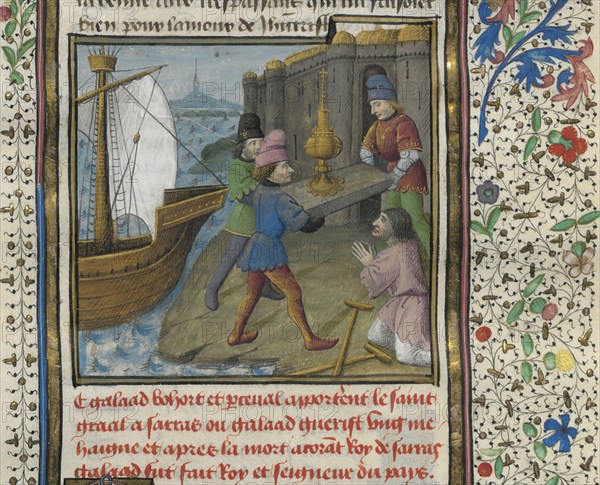 la venue
bien pour lamour de
E galaad bohort et perceval apportent le saint
graal a sarras ou galaad guerist vng me
haigne et apres la mort acorant Roy de sarras
galaad fut fait Roy et seigneur du pays.